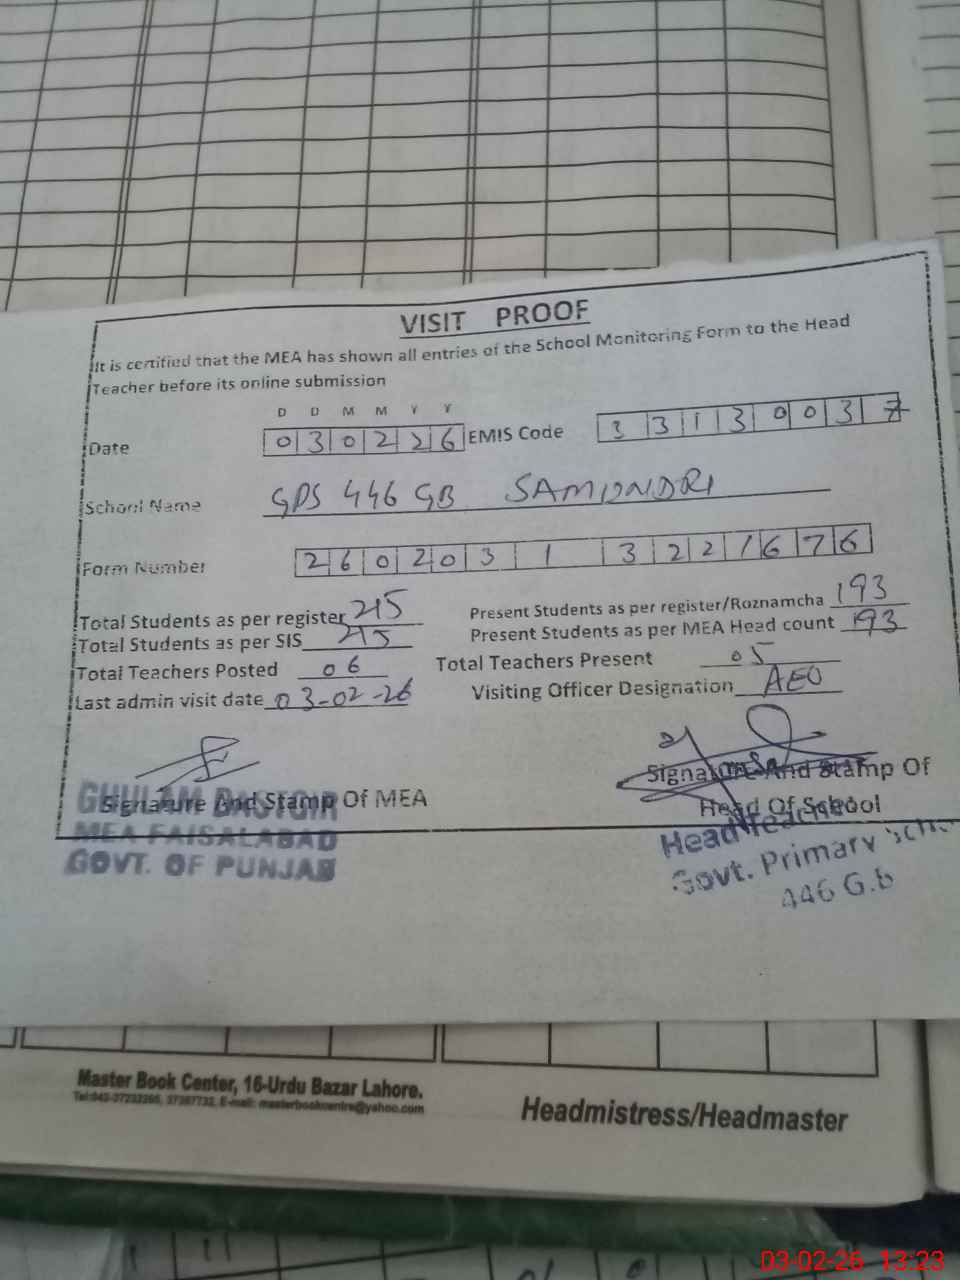 VISIT PROOF
It is certified that the MEA has shown all entries of the School Monitoring Form to the Head
Teacher before its online submission
D D M M Y Y
Date 0 3 0 2 2 6 EMIS Code 3 3 1 3 0 0 3 7
School Name GPS 446 GB SAMUNDRI
Form Number 2 6 0 2 0 3 1 3 2 2 1 6 7 6
Total Students as per register 215 Present Students as per register/Roznamcha 193
Total Students as per SIS 215 Present Students as per MEA Head count 193
Total Teachers Posted 06 Total Teachers Present 05
Last admin visit date 03-02-26 Visiting Officer Designation AEO
Signature And Stamp Of MEA Signature And Stamp Of
Head Of School
GHULAM DASTGIR
MEA FAISALABAD
GOVT. OF PUNJAB
Head Teacher
Govt. Primary
446 G.b
Master Book Center, 16-Urdu Bazar Lahore.
Tel:042-37233265, 37367732, E-mail: masterbookcentre@yahoo.com
Headmistress/Headmaster
03-02-26 13:23